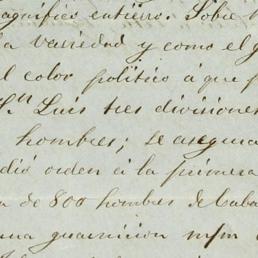 magnífico entierro. Sobre
la variedad y como el g
l color político á que p
Sn Luis tres divisiones
hombres; se asegura
dió orden á la primera
n de 800 hombres de caba
una guarnicion